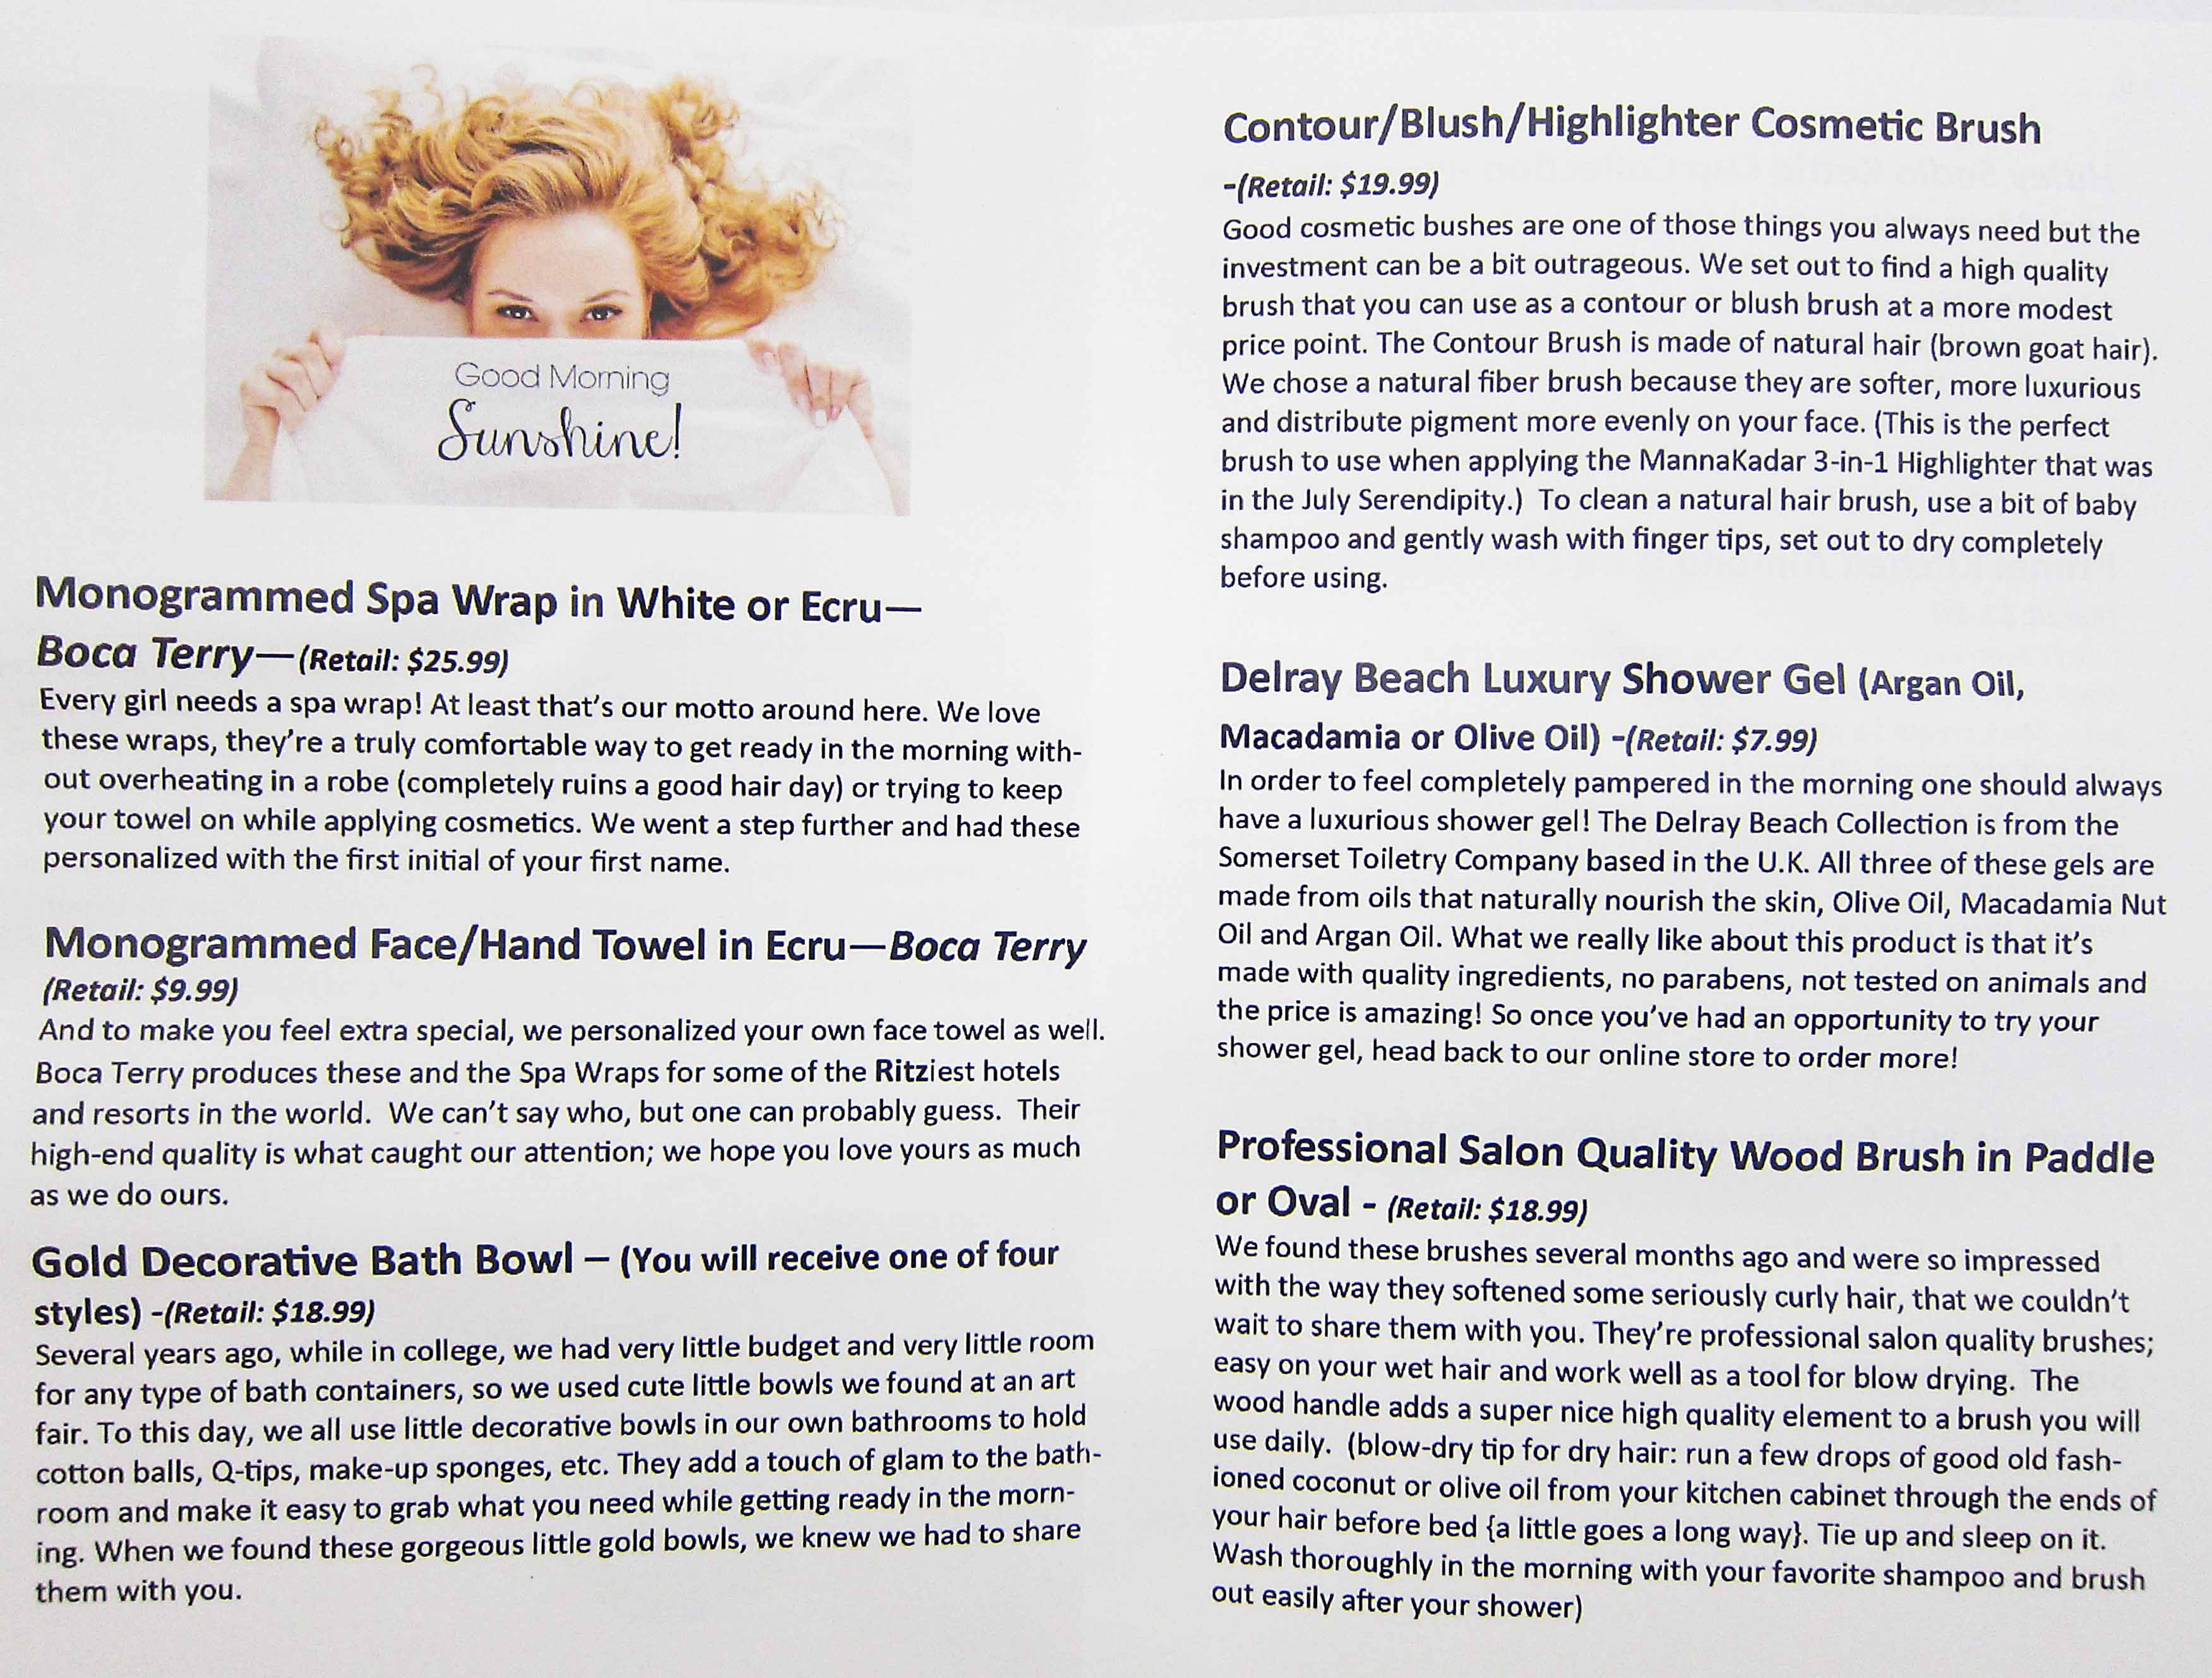 Good Morning
Sunshine!
Monogrammed Spa Wrap in White or Ecru—
Boca Terry—(Retail: $25.99)
Every girl needs a spa wrap! At least that's our motto around here. We love
these wraps, they're a truly comfortable way to get ready in the morning with-
out overheating in a robe (completely ruins a good hair day) or trying to keep
your towel on while applying cosmetics. We went a step further and had these
personalized with the first initial of your first name.
Monogrammed Face/Hand Towel in Ecru—Boca Terry
(Retail: $9.99)
And to make you feel extra special, we personalized your own face towel as well.
Boca Terry produces these and the Spa Wraps for some of the Ritziest hotels
and resorts in the world.  We can't say who, but one can probably guess.  Their
high-end quality is what caught our attention; we hope you love yours as much
as we do ours.
Gold Decorative Bath Bowl – (You will receive one of four
styles) -(Retail: $18.99)
Several years ago, while in college, we had very little budget and very little room
for any type of bath containers, so we used cute little bowls we found at an art
fair. To this day, we all use little decorative bowls in our own bathrooms to hold
cotton balls, Q-tips, make-up sponges, etc. They add a touch of glam to the bath-
room and make it easy to grab what you need while getting ready in the morn-
ing. When we found these gorgeous little gold bowls, we knew we had to share
them with you.
Contour/Blush/Highlighter Cosmetic Brush
-(Retail: $19.99)
Good cosmetic bushes are one of those things you always need but the
investment can be a bit outrageous. We set out to find a high quality
brush that you can use as a contour or blush brush at a more modest
price point. The Contour Brush is made of natural hair (brown goat hair).
We chose a natural fiber brush because they are softer, more luxurious
and distribute pigment more evenly on your face. (This is the perfect
brush to use when applying the MannaKadar 3-in-1 Highlighter that was
in the July Serendipity.)  To clean a natural hair brush, use a bit of baby
shampoo and gently wash with finger tips, set out to dry completely
before using.
Delray Beach Luxury Shower Gel (Argan Oil,
Macadamia or Olive Oil) -(Retail: $7.99)
In order to feel completely pampered in the morning one should always
have a luxurious shower gel! The Delray Beach Collection is from the
Somerset Toiletry Company based in the U.K. All three of these gels are
made from oils that naturally nourish the skin, Olive Oil, Macadamia Nut
Oil and Argan Oil. What we really like about this product is that it's
made with quality ingredients, no parabens, not tested on animals and
the price is amazing! So once you've had an opportunity to try your
shower gel, head back to our online store to order more!
Professional Salon Quality Wood Brush in Paddle
or Oval - (Retail: $18.99)
We found these brushes several months ago and were so impressed
with the way they softened some seriously curly hair, that we couldn't
wait to share them with you. They're professional salon quality brushes;
easy on your wet hair and work well as a tool for blow drying.  The
wood handle adds a super nice high quality element to a brush you will
use daily.  (blow-dry tip for dry hair: run a few drops of good old fash-
ioned coconut or olive oil from your kitchen cabinet through the ends of
your hair before bed {a little goes a long way}. Tie up and sleep on it.
Wash thoroughly in the morning with your favorite shampoo and brush
out easily after your shower)